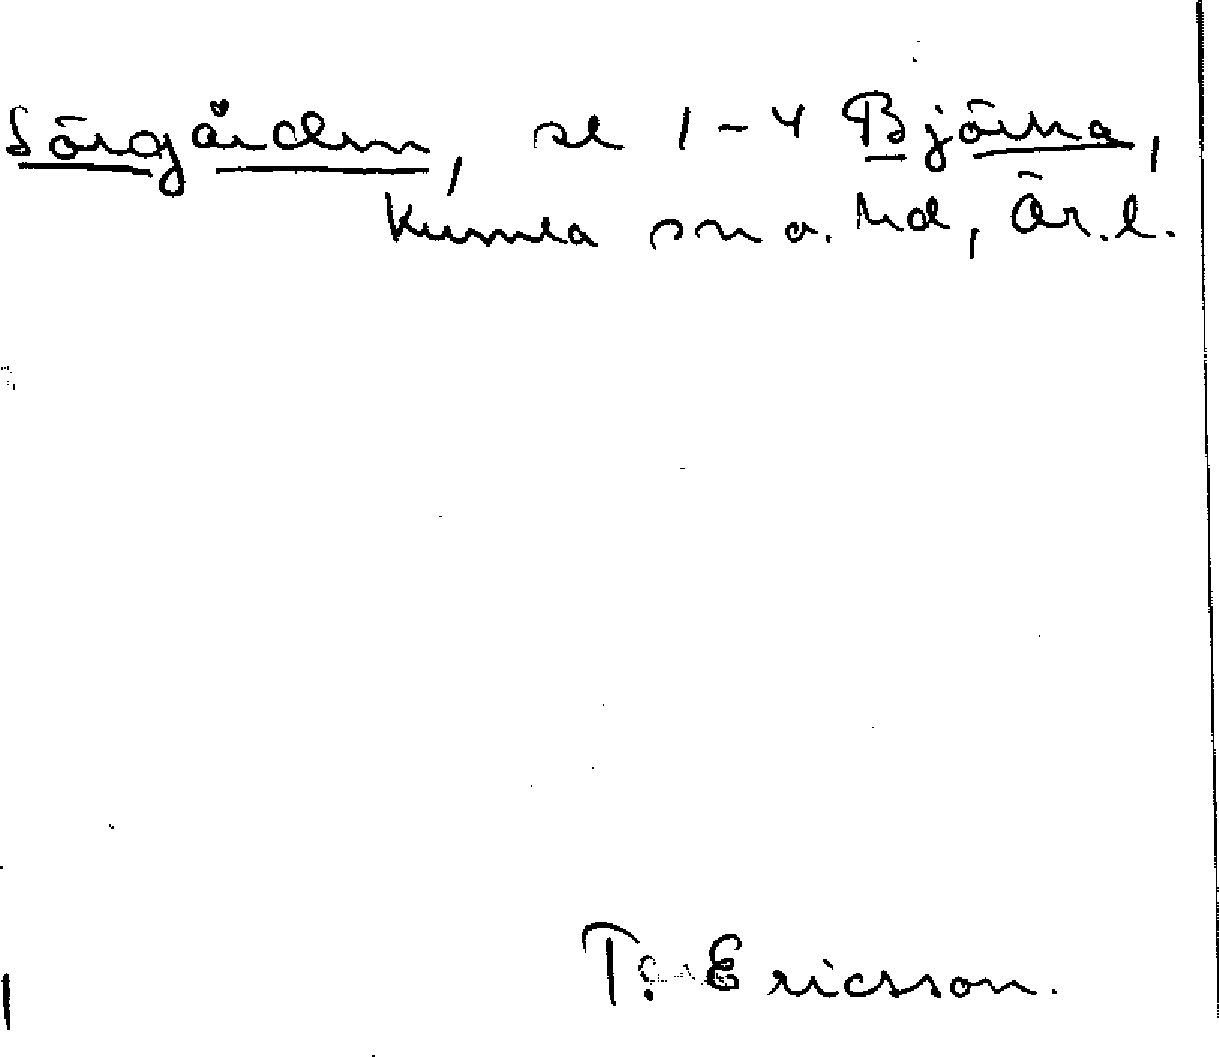 Sörgården, se 1-4 Björka,
Kumla sn o. hd, Ör.l.
T. Ericsson.